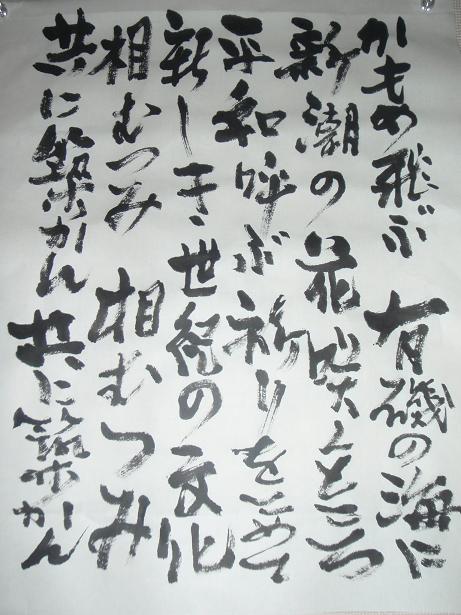 かもめ飛ぶ 有磯の海に
新潮の花咲くところ
平和呼ぶ祈りをこめて
新しき世紀の文化
相むつみ 相むつみ
共に築かん共に築かん